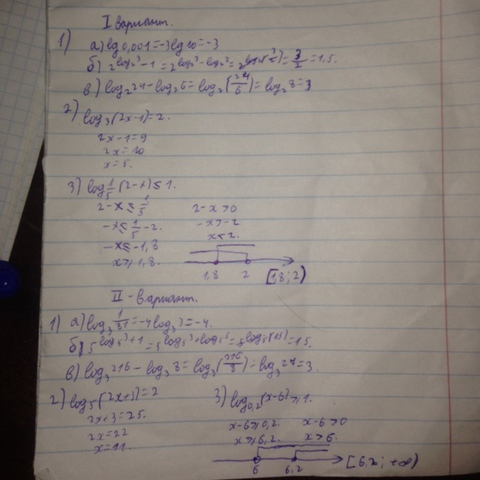 I вариант.
1) а) lg 0,001 = -3 lg 10 = -3
б) 2^(log₂3 - 1) = 2^(log₂3 - log₂2) = = 3/2 = 1,5.
в) log₂24 - log₂6 = log₂(24/6) = log₂8 = 3
2) log₃(2x-1) = 2.
2x-1 = 9
2x = 10
x = 5.
3) log 1/5 (2-x) ≤ 1.
2-x ≤ 1/5
-x ≤ 1/5 - 2.
-x ≤ -1,8
x ≥ 1,8.
2-x > 0
-x > -2
x < 2.
1,8 2 [1,8; 2)
II - вариант.
1) а) log₃ 1/81 = -4 log₃3 = -4.
б) 5^(log₅3 + 1) = = 15.
в) log₃216 - log₃8 = log₃(216/8) = log₃27 = 3.
2) log₅(2x+3) = 2
2x+3 = 25.
2x = 22
x = 11.
3) log₀,₂(x-6) ≥ 1.
x-6 ≥ 0,2.
x ≥ 6,2.
x-6 > 0
x > 6.
6 6,2 [6,2; +∞)